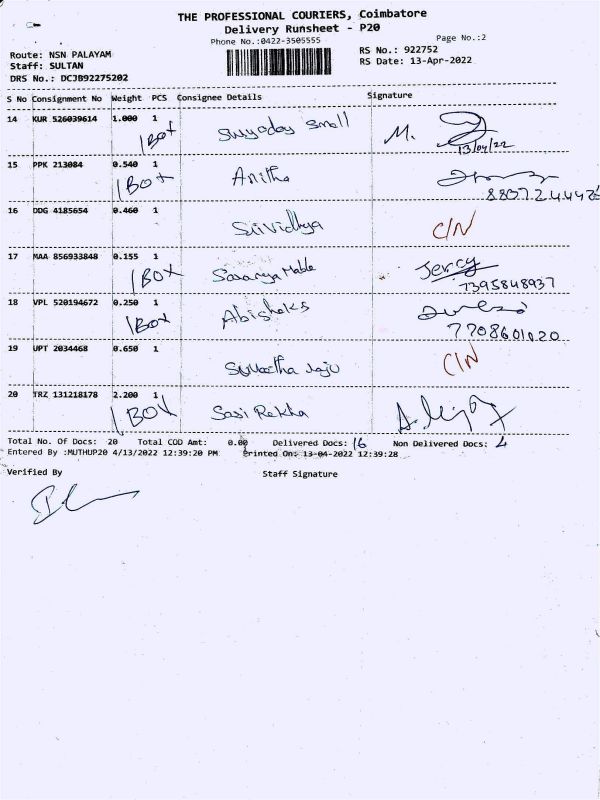 THE PROFESSIONAL COURIERS, Coimbatore
Delivery Runsheet - P20
Phone No.:0422-3505555
Page No.:2
Route: NSN PALAYAM
RS No.: 922752
Staff: SULTAN
RS Date: 13-Apr-2022
DRS No.: DCJB92275202
S No Consignment No Weight PCS Consignee Details Signature
14 KUR 526039614 1.000 1 Suyoday small M.
1 BOX 13/04/22
15 PPK 213084 0.540 1 Anitha
1 BOX
16 DDG 4185654 0.460 1 Srividhya C/N
17 MAA 856933848 0.155 1 Jercy
1 BOX Saranya Mable 7395848937
18 VPL 520194672 0.250 1 Abisheks
1 BOX 7708601020
19 UPT 2034468 0.650 1 C/N
20 TRZ 131218178 2.200 1 Sasi Rekha
1 BOX
Total No. Of Docs: 20 Total COD Amt: 0.00 Delivered Docs: 16 Non Delivered Docs: 4
Entered By :MUTHUP20 4/13/2022 12:39:20 PM Printed On: 13-04-2022 12:39:28
Verified By Staff Signature